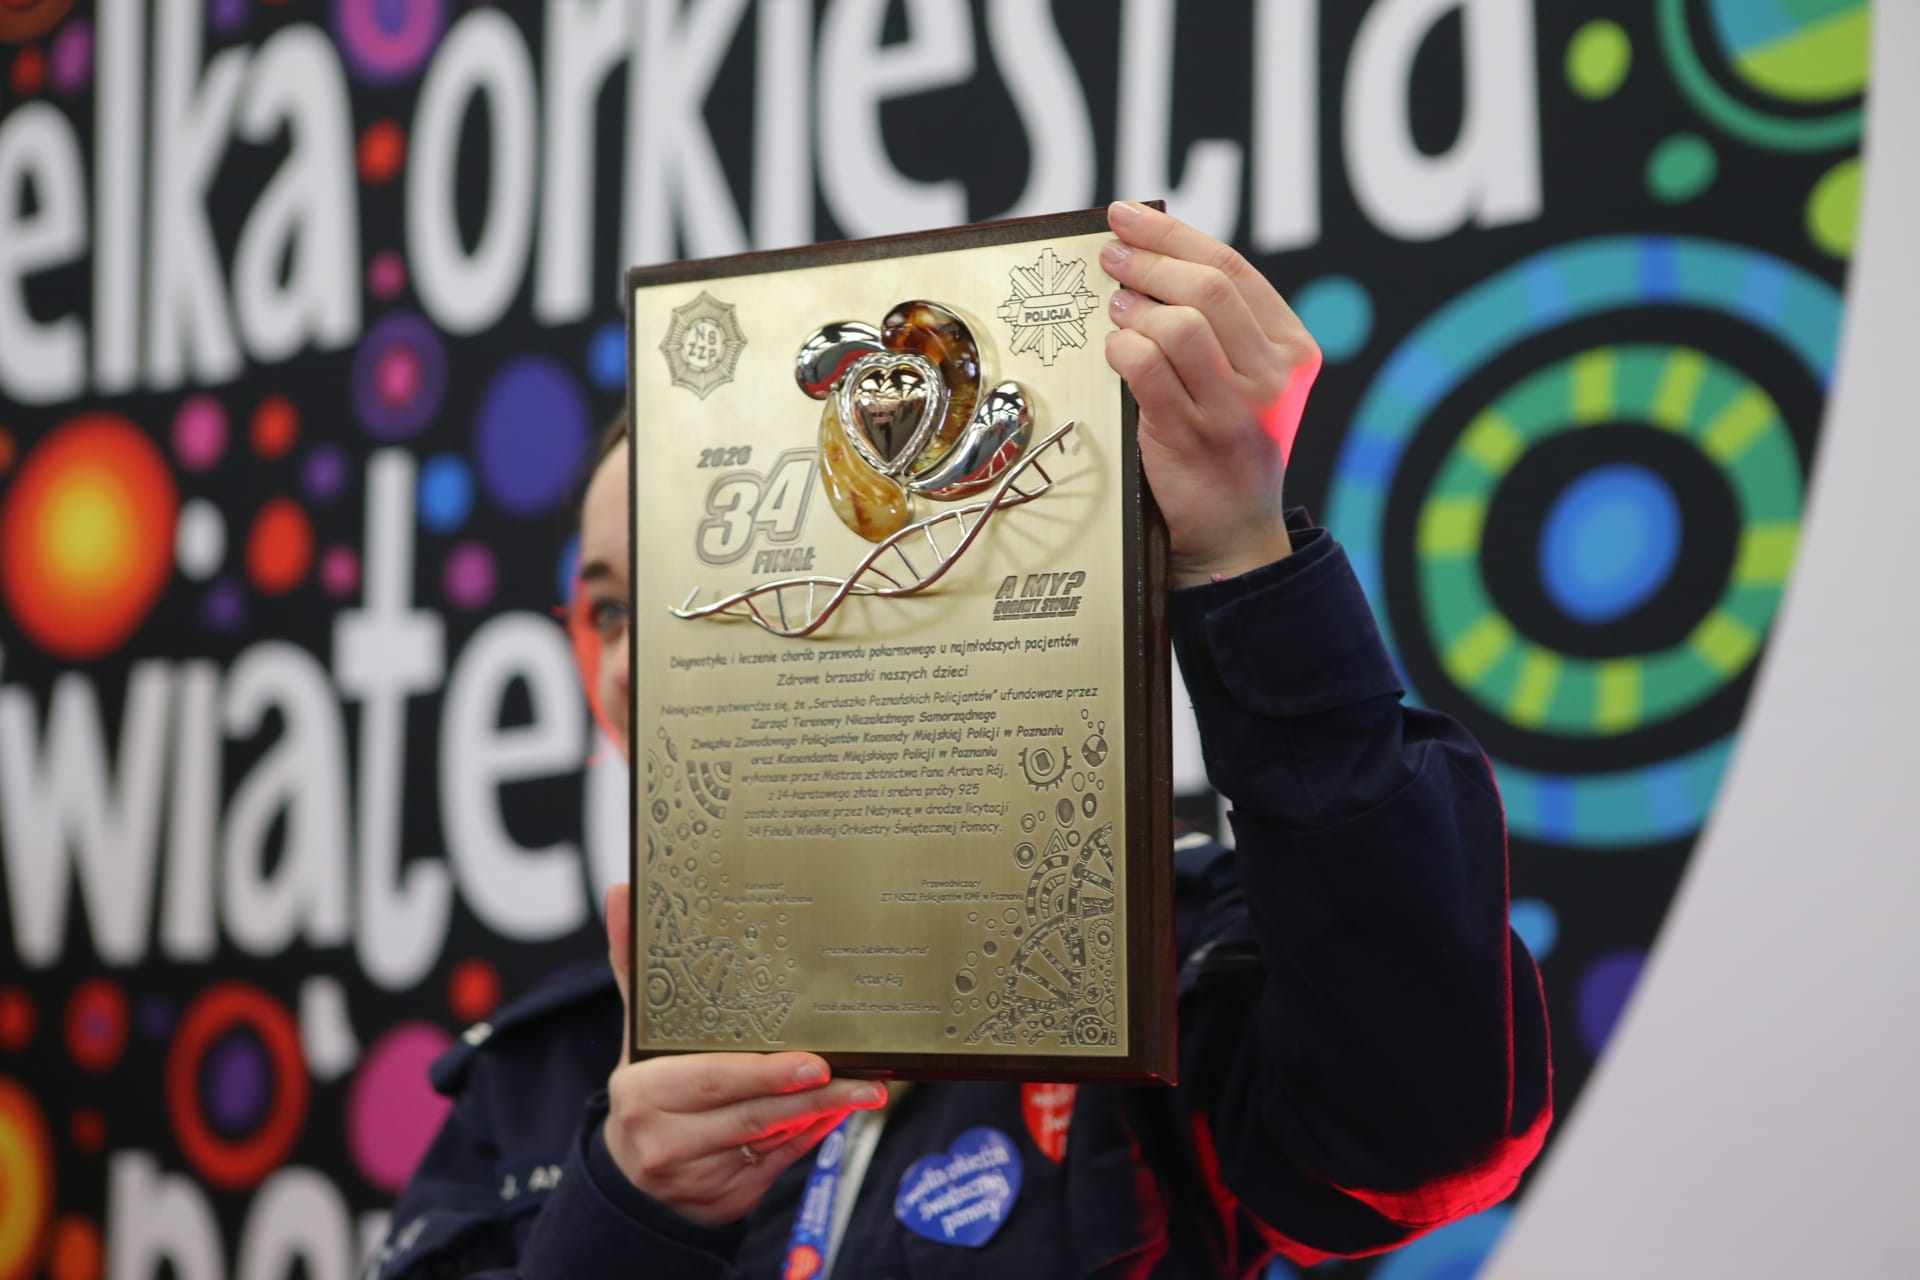 elka orkiestra
świąte
po
NS
ZZP
POLICJA
2026
34
FINAŁ
A MY?
ROBIMY SWOJE
Diagnostyka i leczenie chorób przewodu pokarmowego u najmłodszych pacjentów
Zdrowe brzuszki naszych dzieci
Niniejszym potwierdza się, że „Serduszko Poznańskich Policjantów" ufundowane przez
Zarząd Terenowy Niezależnego Samorządnego
Związku Zawodowego Policjantów Komendy Miejskiej Policji w Poznaniu
oraz Komendanta Miejskiego Policji w Poznaniu
wykonane przez Mistrza złotnictwa Pana Artura Rój,
z 14-karatowego złota i srebra próby 925
zostało zakupione przez Nabywcę w drodze licytacji
34 Finału Wielkiej Orkiestry Świątecznej Pomocy.
Komendant
Miejski Policji w Poznaniu
Przewodniczący
ZT NSZZ Policjantów KMP w Poznaniu
Pracownia Jubilerska „Artus"
Artur Rój
Poznań dnia 25 stycznia 2026 roku
J. AN
wielka orkiestra
świątecznej
pomocy